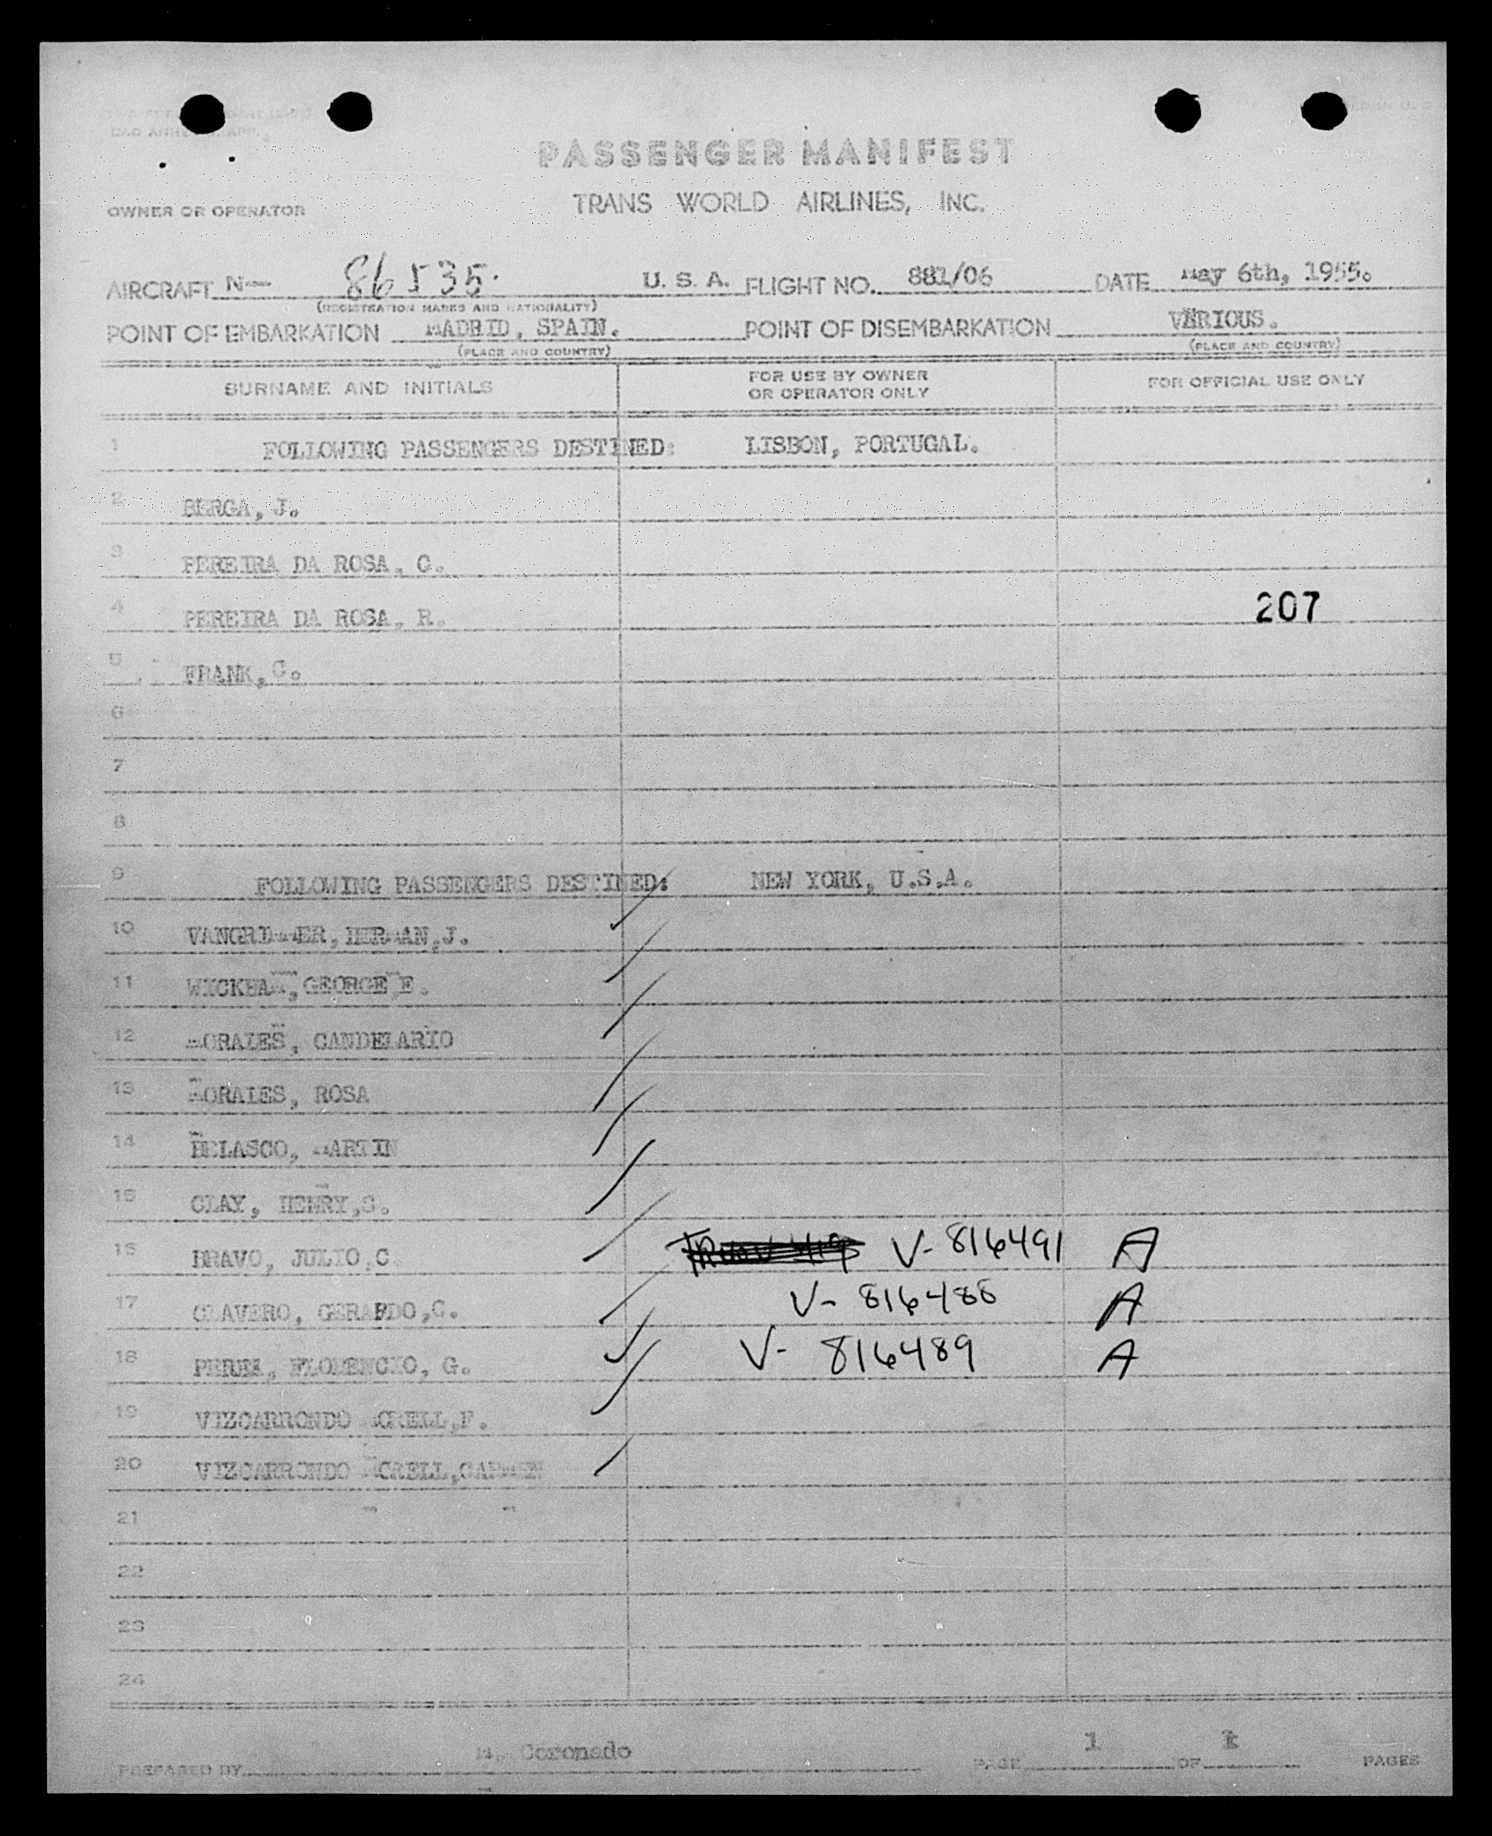 PASSENGER MANIFEST
OWNER OR OPERATOR TRANS WORLD AIRLINES, INC.
AIRCRAFT N— 86535. U. S. A. FLIGHT NO. 881/06 DATE May 6th, 1955.
(REGISTRATION MARKS AND NATIONALITY)
POINT OF EMBARKATION MADRID, SPAIN. POINT OF DISEMBARKATION VERIOUS.
(PLACE AND COUNTRY) (PLACE AND COUNTRY)
SURNAME AND INITIALS FOR USE BY OWNER OR OPERATOR ONLY FOR OFFICIAL USE ONLY
1 FOLLOWING PASSENGERS DESTINED: LISBON, PORTUGAL.
2 BERGA, J.
3 PEREIRA DA ROSA, C.
4 PEREIRA DA ROSA, R. 207
5 FRANK, C.
6
7
8
9 FOLLOWING PASSENGERS DESTINED: NEW YORK, U.S.A.
10 HERMAN, J.
11 WICKHAM, GEORGE E.
12 MORALES, CANDELARIO
13 MORALES, ROSA
14 BELASCO, MARTIN
15 CLAY, HENRY, S.
16 BRAVO, JULIO, C. V-816491 A
17 CLAVERO, GERARDO, C. V-816488 A
18 FLORENCIO, G. V-816489 A
19 VIZCARRONDO MORELL, F.
20 VIZCARRONDO MORELL, CARMEN
21
22
23
24
PREPARED BY M. Coronado PAGE 1 OF PAGES